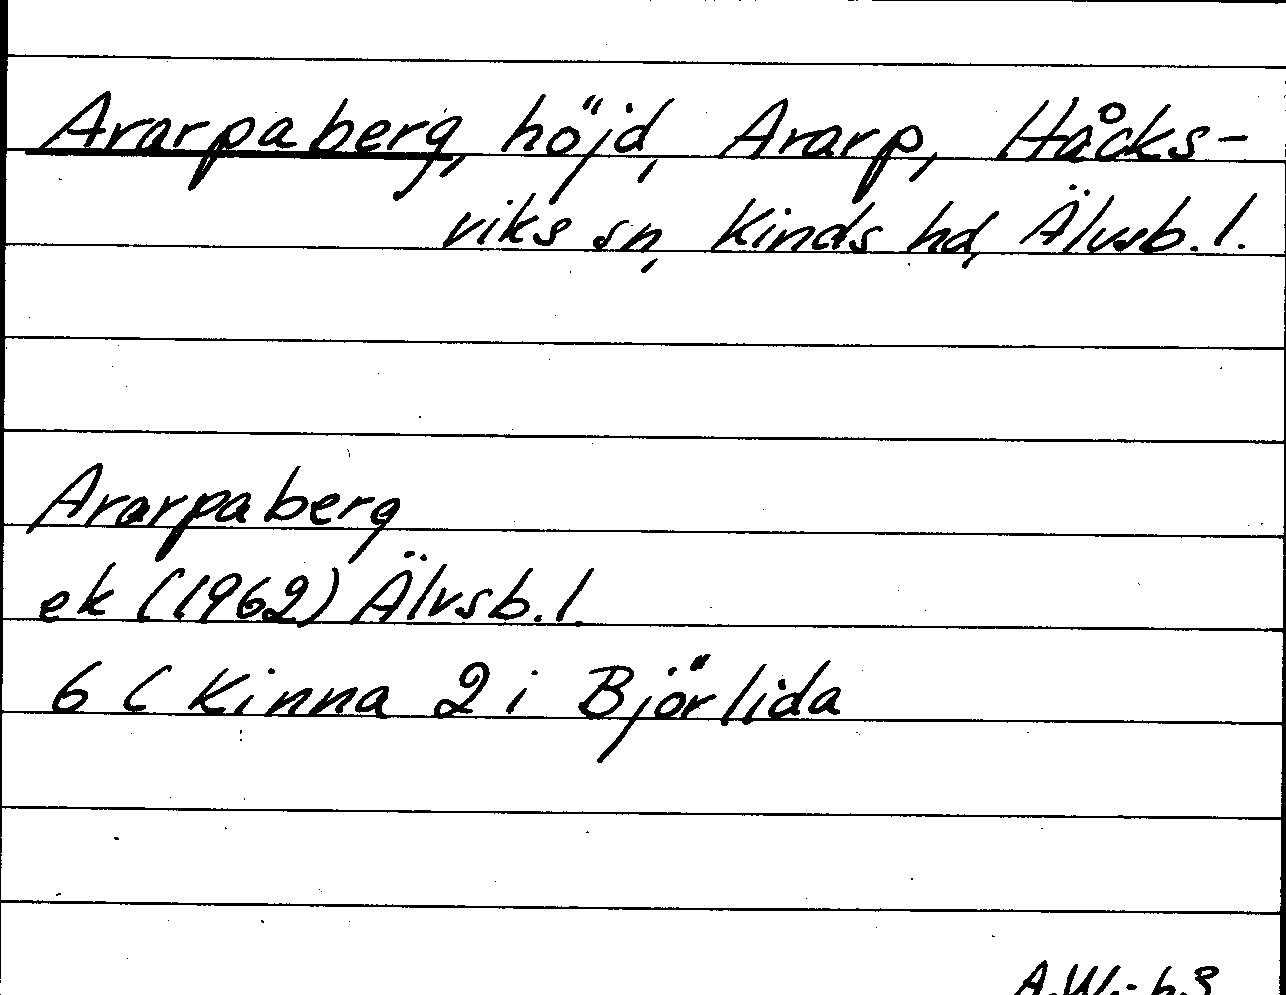 Ararpaberg, höjd, Ararp, Håcks-
viks sn, Kinds hd, Älvsb.l.
Ararpaberg
ek (1962) Älvsb.l.
6 C Kinna 2 i Björlida
A.W.-63